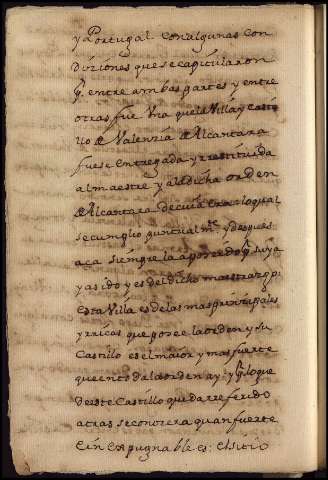 y Portugal con algunas con
diziones que se capitularon
q.e entre ambas partes y entre
otras fue una que la Villa y Casti
llo de Valenzia de Alcantara
fuese entregada y restituida
al maestre y a la dicha orden
de Alcantara de cuia era lo qual
se cumplio puntualm.te y despues
aca siempre la a poseido q.e suya
y a sido y es del dicho maestrazgo:
Esta Villa es de las mas prinzipales
y rricas que posee la orden y su
Castillo es el maior y mas fuerte
que en toda la orden ay: y q.e lo que
de este Castillo queda rreferido
atras se conozera quan fuerte
e in expugnable es: el sitio